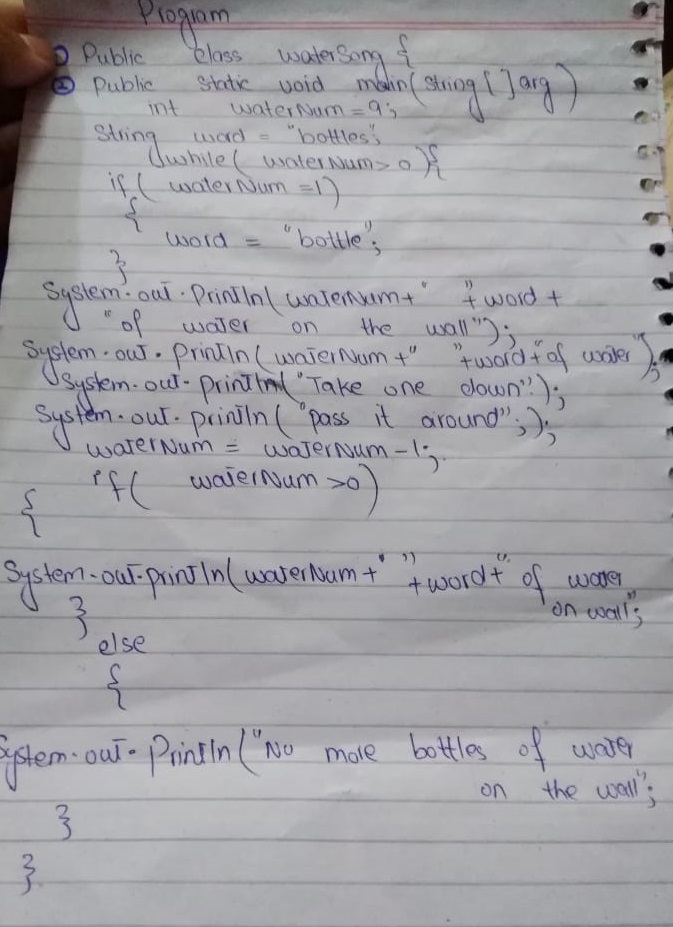 Program
① Public class waterSong {
② Public static void main(string[]arg)
int waterNum = 9;
String word = "bottles";
while( waterNum > 0){
if( waterNum =1)
{
word = "bottle";
}
System.out.Println( waterNum+" "+ word +
"of water on the wall");
System.out.println( waterNum +" "+word+"of water");
System.out.println("Take one down");
System.out.println( "pass it around";);
waterNum = waterNum -1;
if( waterNum >0)
{
System.out.println( waterNum +" "+word+" of water
on wall";
}
else
{
System.out.Println("No more bottles of water
on the wall";
}
}